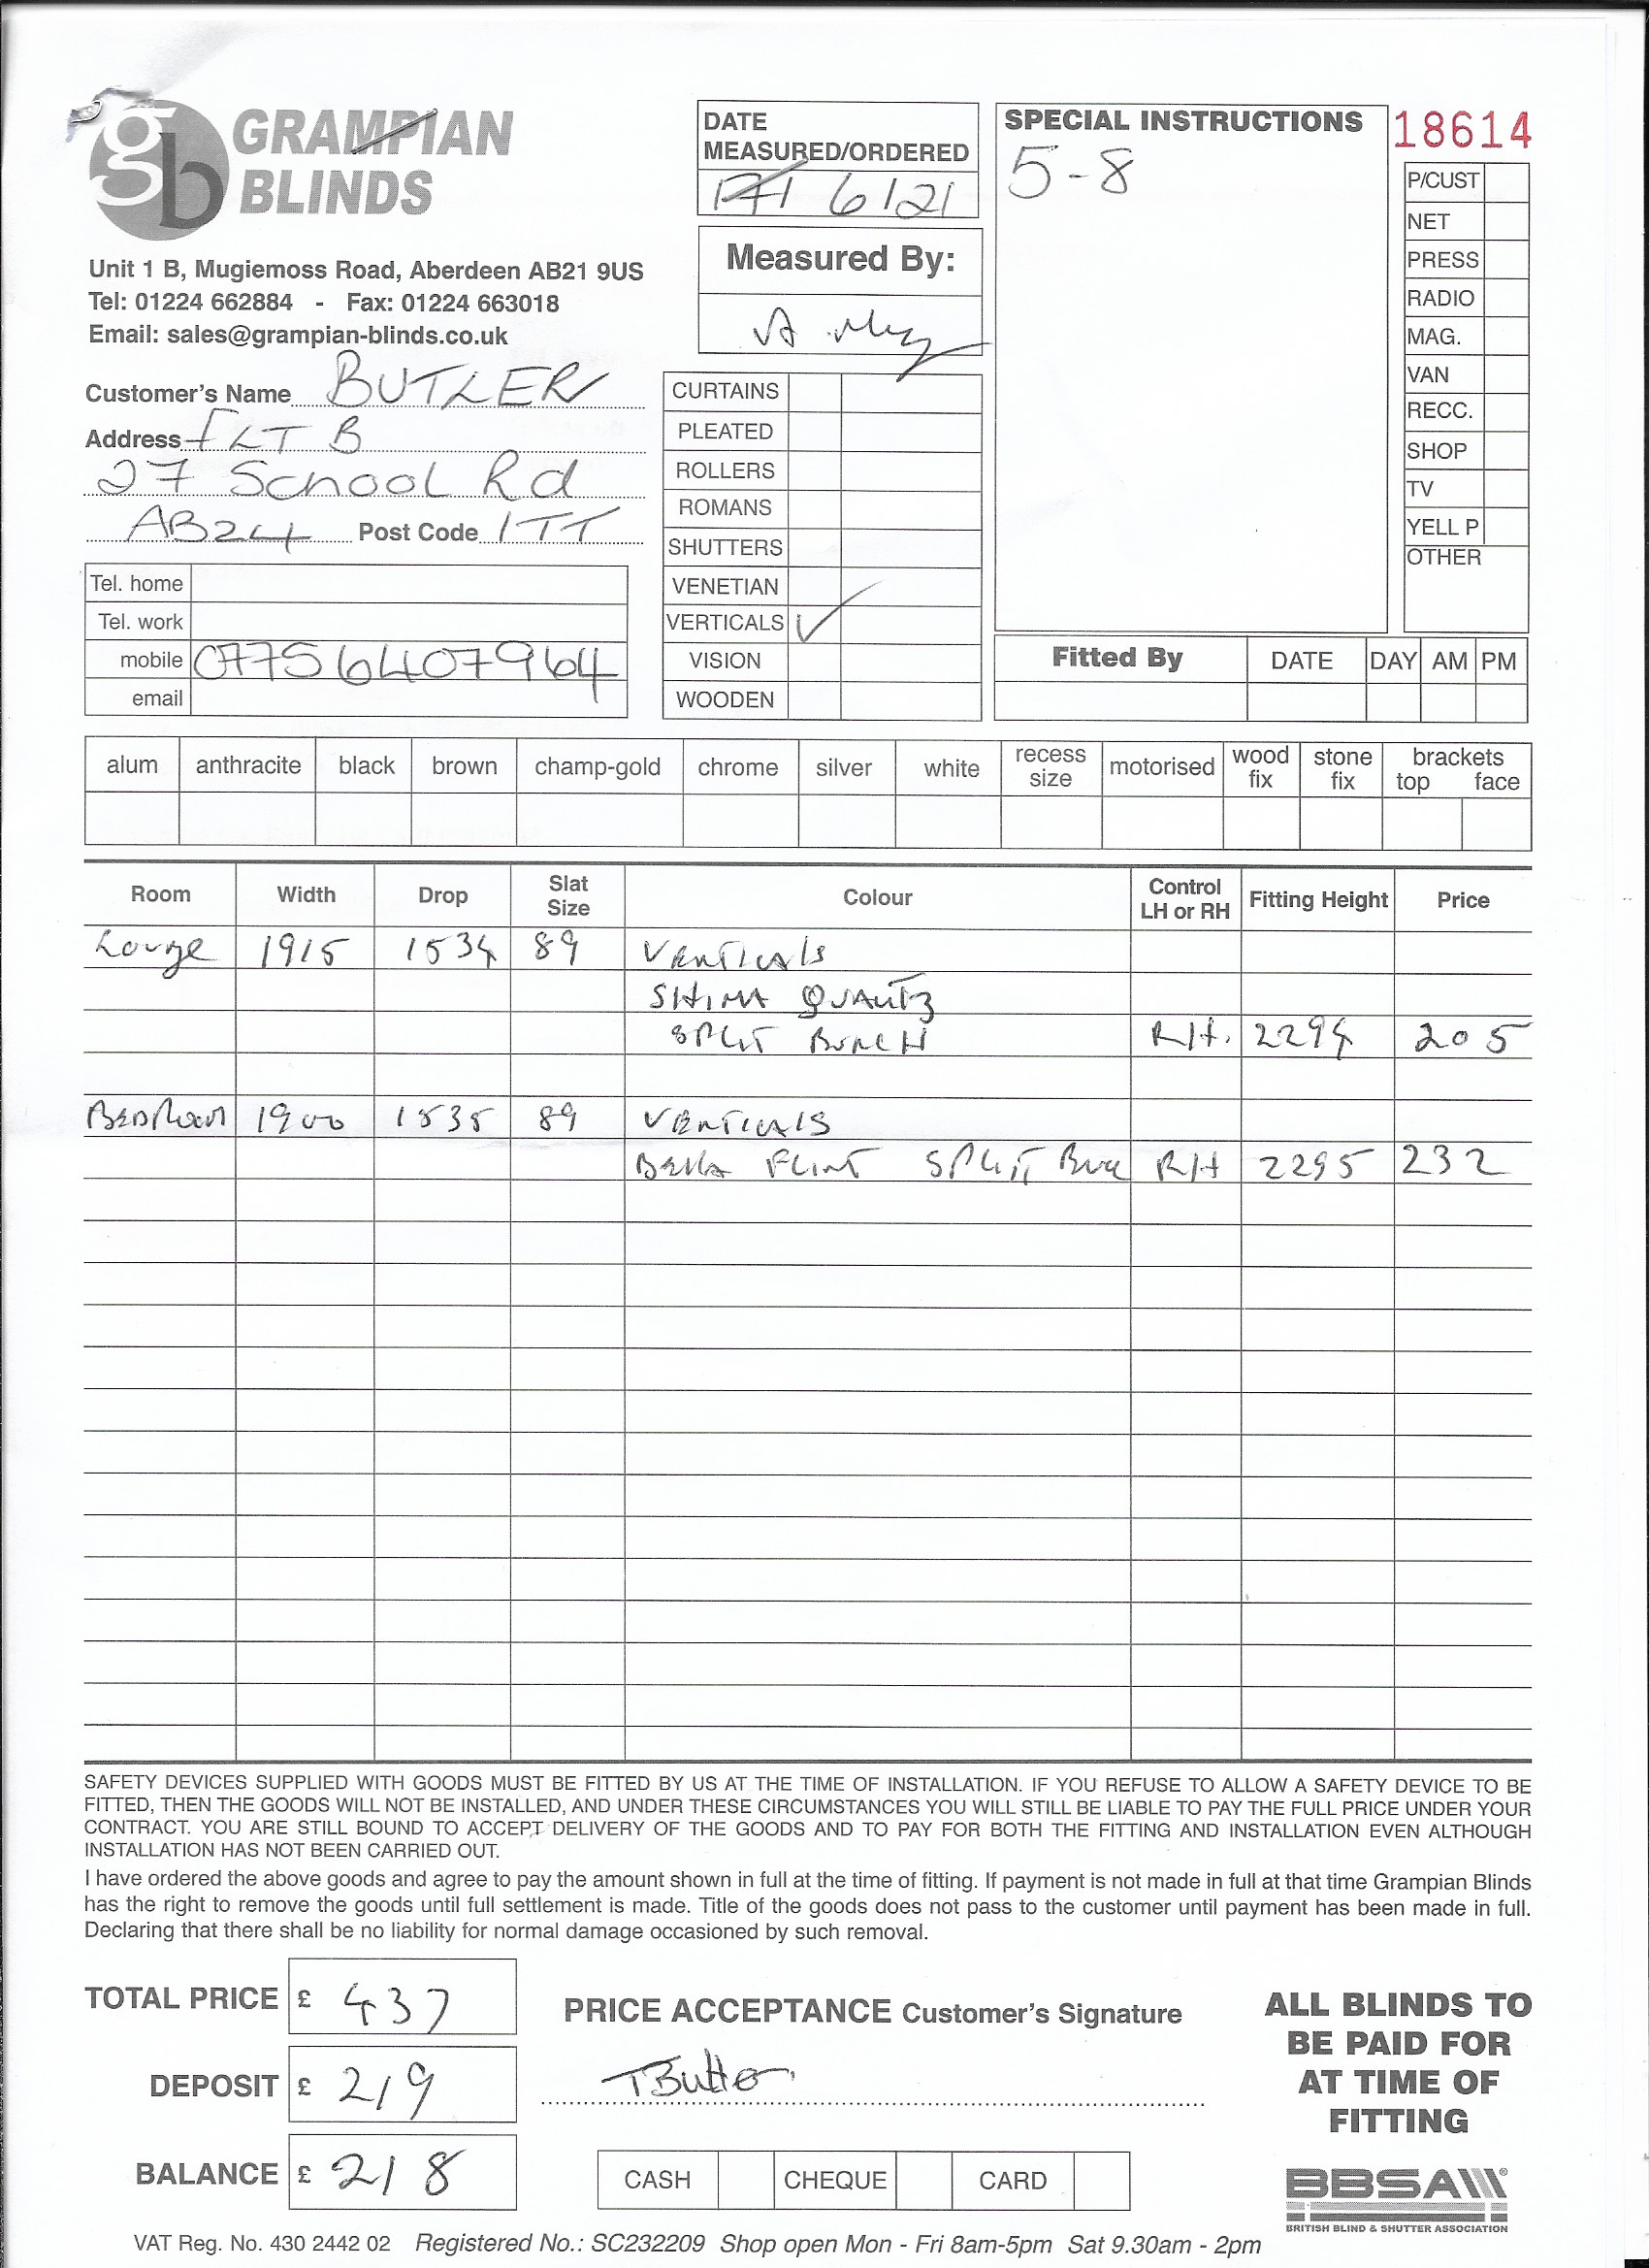 gb GRAMPIAN
BLINDS
Unit 1 B, Mugiemoss Road, Aberdeen AB21 9US
Tel: 01224 662884 - Fax: 01224 663018
Email: sales@grampian-blinds.co.uk
DATE
MEASURED/ORDERED
6/21
Measured By:
SPECIAL INSTRUCTIONS
5-8
18614
P/CUST
NET
PRESS
RADIO
MAG.
VAN
RECC.
SHOP
TV
YELL P
OTHER
Customer's Name BUTLER
Address FLT B
27 School Rd
AB24 Post Code 1TT
Tel. home
Tel. work
mobile 07756407964
email
CURTAINS
PLEATED
ROLLERS
ROMANS
SHUTTERS
VENETIAN
VERTICALS ✓
VISION
WOODEN
Fitted By DATE DAY AM PM
alum anthracite black brown champ-gold chrome silver white recess size motorised wood fix stone fix brackets top face
Room Width Drop Slat Size Colour Control LH or RH Fitting Height Price
Lounge 1915 1534 89 Verticals
SHIMA QUARTZ
SPLIT BUNCH R/H. 2294 205
BEDROOM 1900 1535 89 VERTICALS
Bella FLINT SPLIT R/H 2295 232
SAFETY DEVICES SUPPLIED WITH GOODS MUST BE FITTED BY US AT THE TIME OF INSTALLATION. IF YOU REFUSE TO ALLOW A SAFETY DEVICE TO BE
FITTED, THEN THE GOODS WILL NOT BE INSTALLED, AND UNDER THESE CIRCUMSTANCES YOU WILL STILL BE LIABLE TO PAY THE FULL PRICE UNDER YOUR
CONTRACT. YOU ARE STILL BOUND TO ACCEPT DELIVERY OF THE GOODS AND TO PAY FOR BOTH THE FITTING AND INSTALLATION EVEN ALTHOUGH
INSTALLATION HAS NOT BEEN CARRIED OUT.
I have ordered the above goods and agree to pay the amount shown in full at the time of fitting. If payment is not made in full at that time Grampian Blinds
has the right to remove the goods until full settlement is made. Title of the goods does not pass to the customer until payment has been made in full.
Declaring that there shall be no liability for normal damage occasioned by such removal.
TOTAL PRICE £ 437
DEPOSIT £ 219
BALANCE £ 218
PRICE ACCEPTANCE Customer's Signature
TButler
CASH CHEQUE CARD
ALL BLINDS TO
BE PAID FOR
AT TIME OF
FITTING
BBSA
BRITISH BLIND & SHUTTER ASSOCIATION
VAT Reg. No. 430 2442 02 Registered No.: SC232209 Shop open Mon - Fri 8am-5pm Sat 9.30am - 2pm